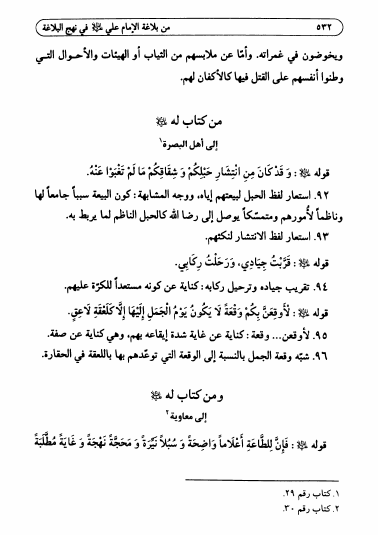 ٥٣٢ من بلاغة الإمام علي ﷺ في نهج البلاغة
ويخوضون في غمراته. وأمّا عن ملابسهم من الثياب أو الهيئات والأحوال التـي
وطنوا أنفسهم على القتل فيها كالأكفان لهم.
من كتاب له
إلى أهل البصرة١
قوله : وَ قَدْ كَانَ مِنِ انْتِشَارِ حَبْلِكُمْ وَ شِقَاقِكُمْ مَا لَمْ تَغْبَوْا عَنْهُ.
٩٢. استعار لفظ الحبل لبيعتهم إياه، ووجه المشابهة: كون البيعة سبباً جامعاً لها
وناظماً لأُمورهم ومتمسكاً يوصل إلى رضا الله كالحبل الناظم لما يربط به.
٩٣. استعار لفظ الانتشار لنكثهم.
قوله : قَرَّبْتُ جِيَادِي، وَرَحَلْتُ رِكَابِي.
٩٤. تقريب جياده وترحيل ركابه: كناية عن كونه مستعداً للكرّة عليهم.
قوله : لَأُوقِعَنَّ بِكُمْ وَقْعَةً لَا يَكُونُ يَوْمُ الْجَمَلِ إِلَيْهَا إِلَّا كَلَعْقَةِ لَاعِقٍ.
٩٥. لأوقعن... وقعة: كناية عن غاية شدة إيقاعه بهم، وهي كناية عن صفة.
٩٦. شبّه وقعة الجمل بالنسبة إلى الوقعة التي توعّدهم بها باللعقة في الحقارة.
ومن كتاب له
إلى معاوية٢
قوله : فَإِنَّ لِلطَّاعَةِ أَعْلَاماً وَاضِحَةً وَ سُبُلاً نَيِّرَةً وَ مَحَجَّةً نَهْجَةً وَ غَايَةً مُطَّلَبَةً
١. كتاب رقم ٢٩.
٢. كتاب رقم ٣٠.